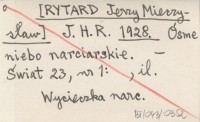 [RYTARD Jerzy Mieczy-
sław] J.H.R. 1928. Ósme
niebo narciarskie. –
Świat 23, nr 1: , il.
Wycieczka narc.